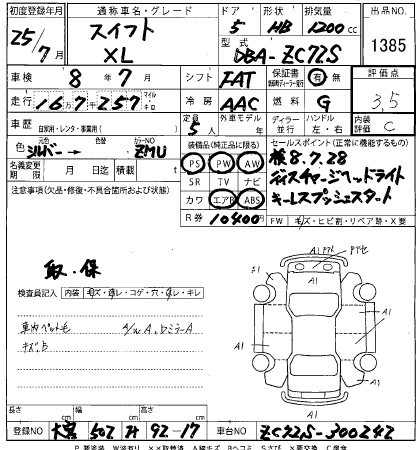 初度登録年月 通称車名・グレード ドア 形状 排気量 出品NO
25/7月 スイフト XL 5 HB 1200cc 1385
型式 DBA-ZC72S
車検 8年7月 シフト FAT 保証書 有・無 評価点 3.5
走行 16万7千257 マイル キロ 冷房 AAC 燃料 G 内装評価 C
車歴 自家用・レンタ・事業用( ) 定員 5人 外車モデル年 年 ディーラー 並行 ハンドル 左・右
色 元色 シルバー → 色替 カラーNO ZMU
装備品(純正品に限る) セールスポイント(正常に機能するもの)
名義変更期限 月 日迄 積載 t
PS PW AW
SR TV ナビ
カワ エアB ABS
検8.7.28
ディスチャージヘッドライト
キーレスプッシュスタート
注意事項(欠品・修復・不具合箇所および状態)
R券 10400円 FW キズ・ヒビ割・リペア跡・X要
取・保
検査員記入 内装 キズ・違レ・コゲ・穴・スレ・キレ
車内ペット毛 A/W A, Dミラー A
キズ, B
A1 A1 A1 A1 A1 A1 A1
長さ cm 幅 cm 高さ cm
登録NO 502 92-17 車台NO ZC72S-300242
P要塗装 W波有り ××交換済 A線キズ Bヘコミ Sさび ×要交換 C腐食